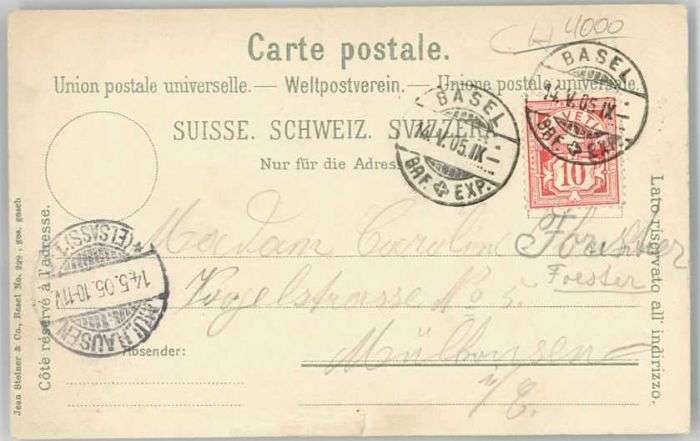 CH 4000
Carte postale.
Union postale universelle.—Weltpostverein.—Unione postale universale.
SUISSE. SCHWEIZ. SVIZZERA.
Nur für die Adresse
BASEL
14.V.05.IX
BRF. EXP.
BASEL
14.V.05.IX
BRF. EXP.
HELVETIA
10
MÜLHAUSEN
14.5.05.10-11V
(ELSASS)1
Madam Carolin Forster
Foester
Vogelstrasse No 5.
Absender:
Mülhausen
i/E.
Côte réservé à l'adresse.
Lato riservato all' indirizzo.
Jean Steiner & Co., Basel No. 229, ges. gesch